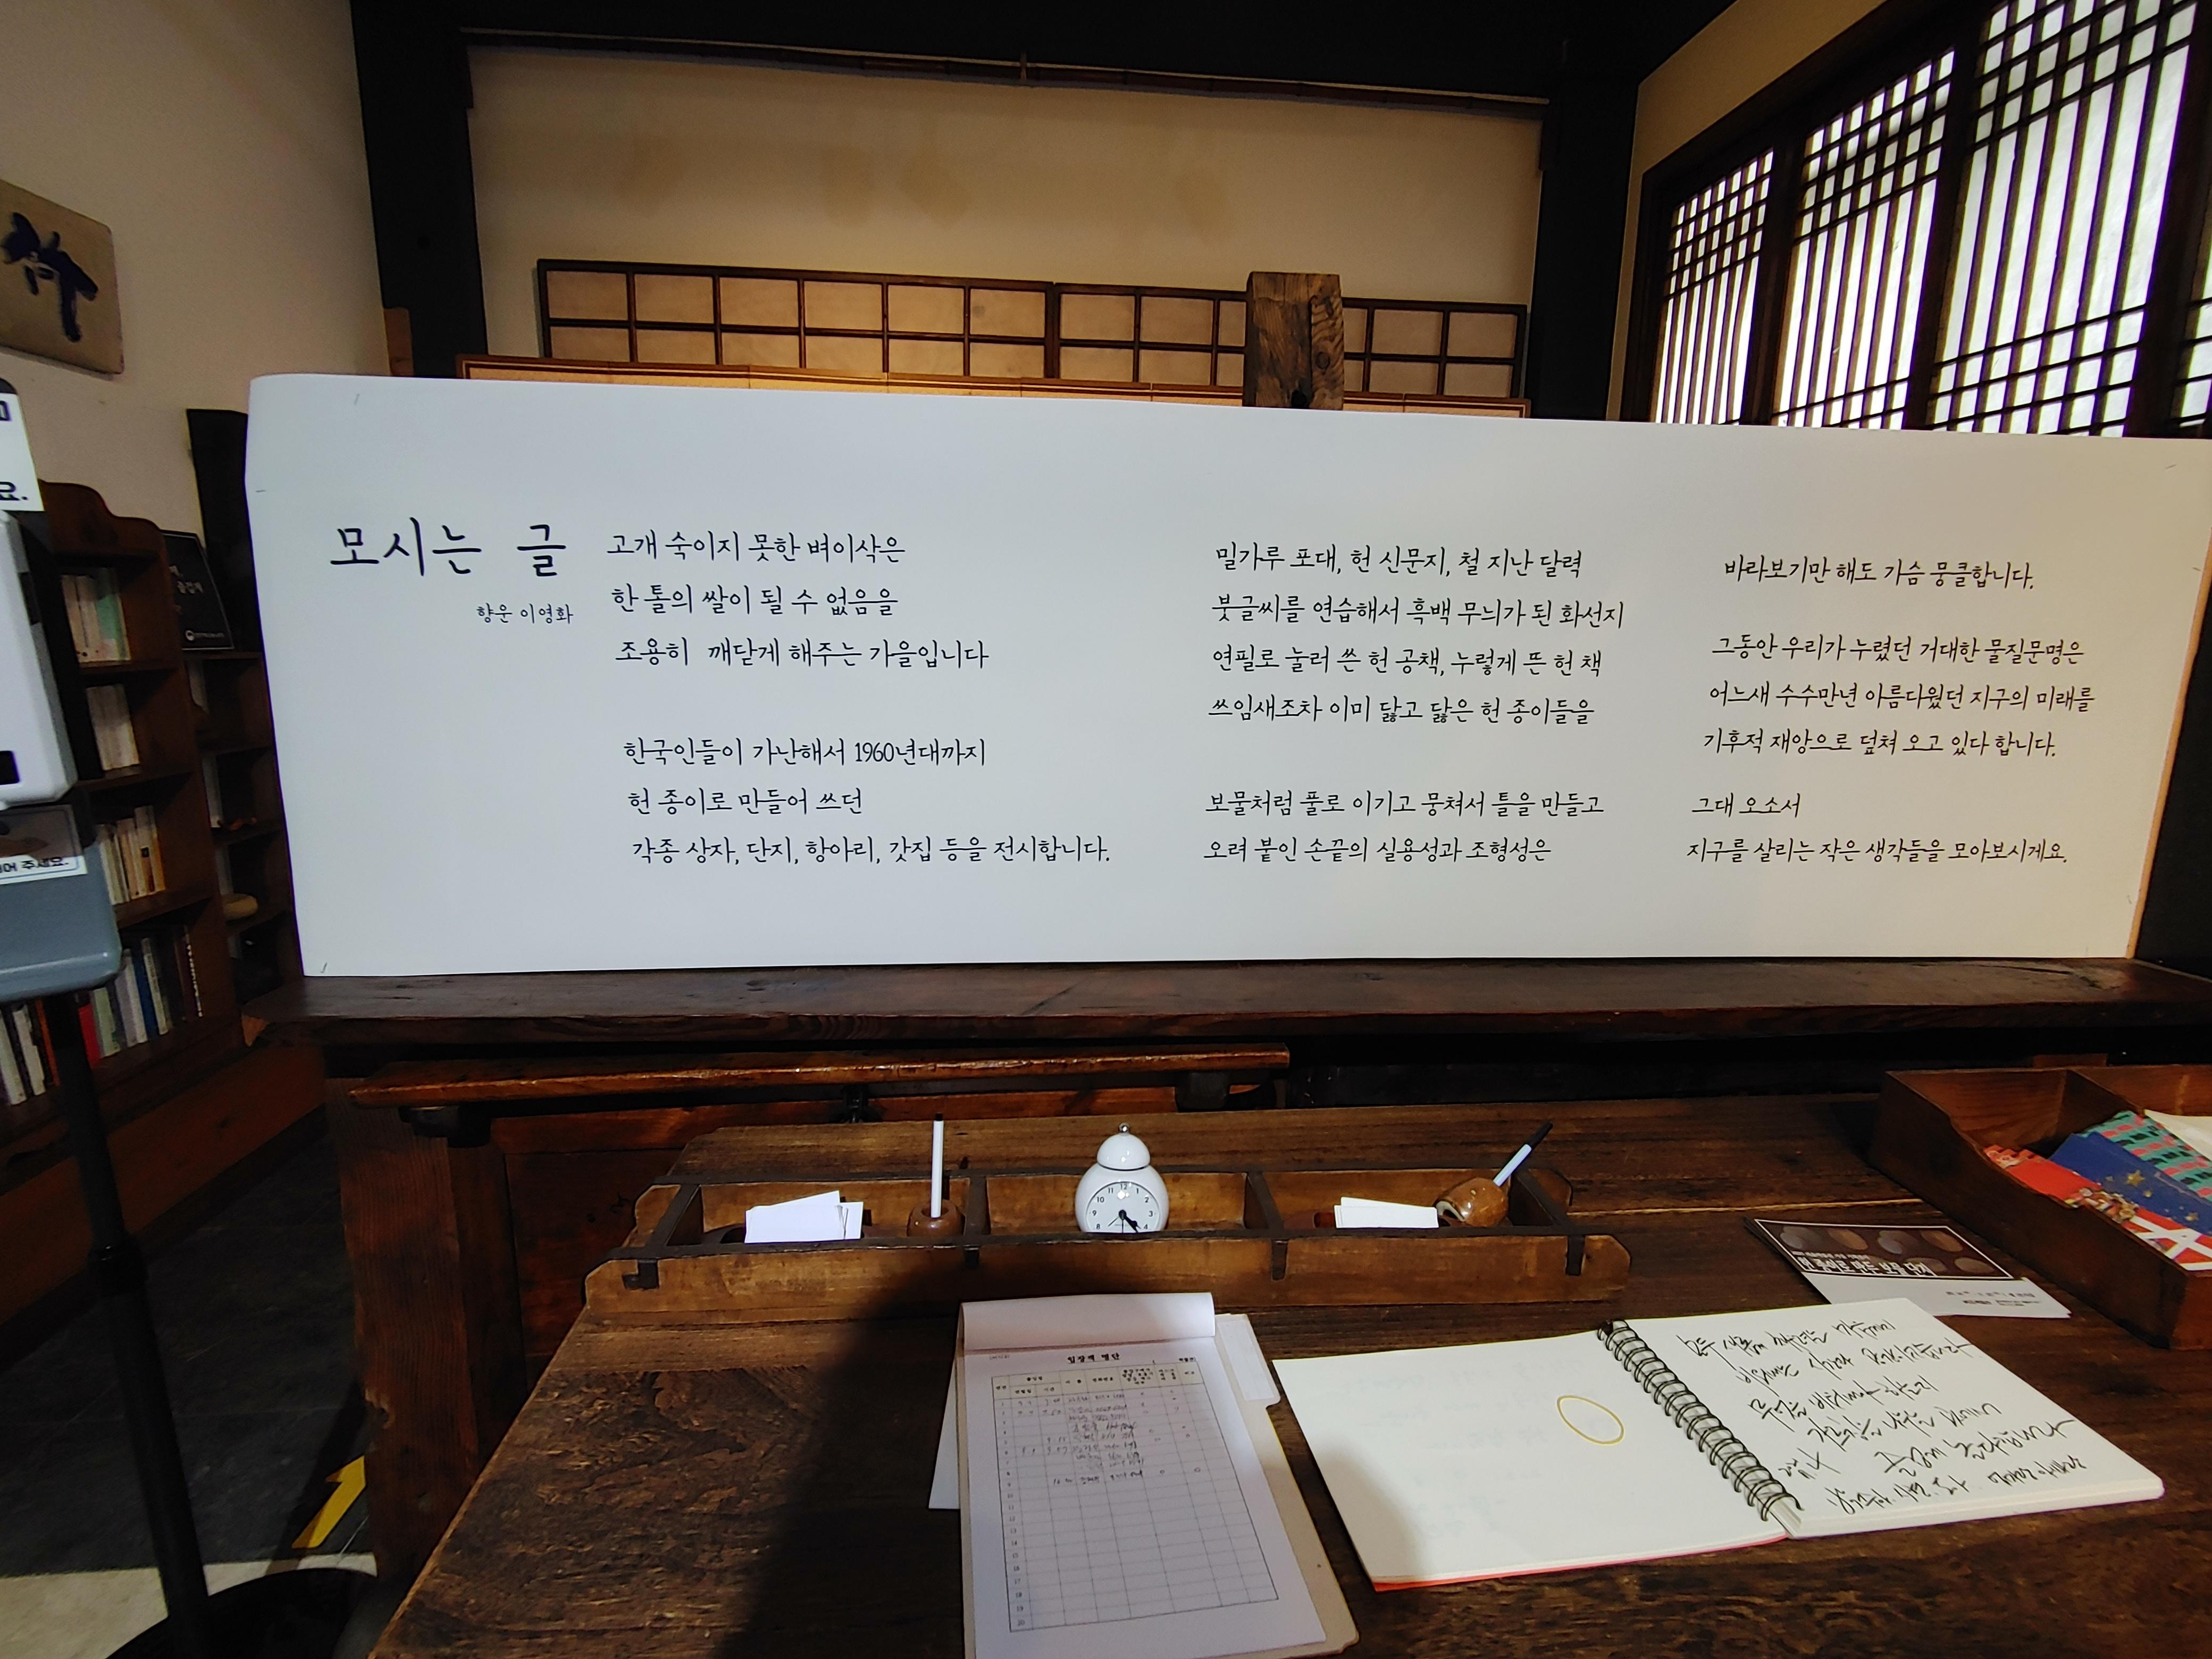 모시는 글
향운 이영화
고개 숙이지 못한 벼이삭은
한 톨의 쌀이 될 수 없음을
조용히 깨닫게 해주는 가을입니다
한국인들이 가난해서 1960년대까지
헌 종이로 만들어 쓰던
각종 상자, 단지, 항아리, 갓집 등을 전시합니다.
밀가루 포대, 헌 신문지, 철 지난 달력
붓글씨를 연습해서 흑백 무늬가 된 화선지
연필로 눌러 쓴 헌 공책, 누렇게 뜬 헌 책
쓰임새조차 이미 닳고 닳은 헌 종이들을
보물처럼 풀로 이기고 뭉쳐서 틀을 만들고
오려 붙인 손끝의 실용성과 조형성은
바라보기만 해도 가슴 뭉클합니다.
그동안 우리가 누렸던 거대한 물질문명은
어느새 수수만년 아름다웠던 지구의 미래를
기후적 재앙으로 덮쳐 오고 있다 합니다.
그대 오소서
지구를 살리는 작은 생각들을 모아보시게요.
요.
주세요.
입장객 명단